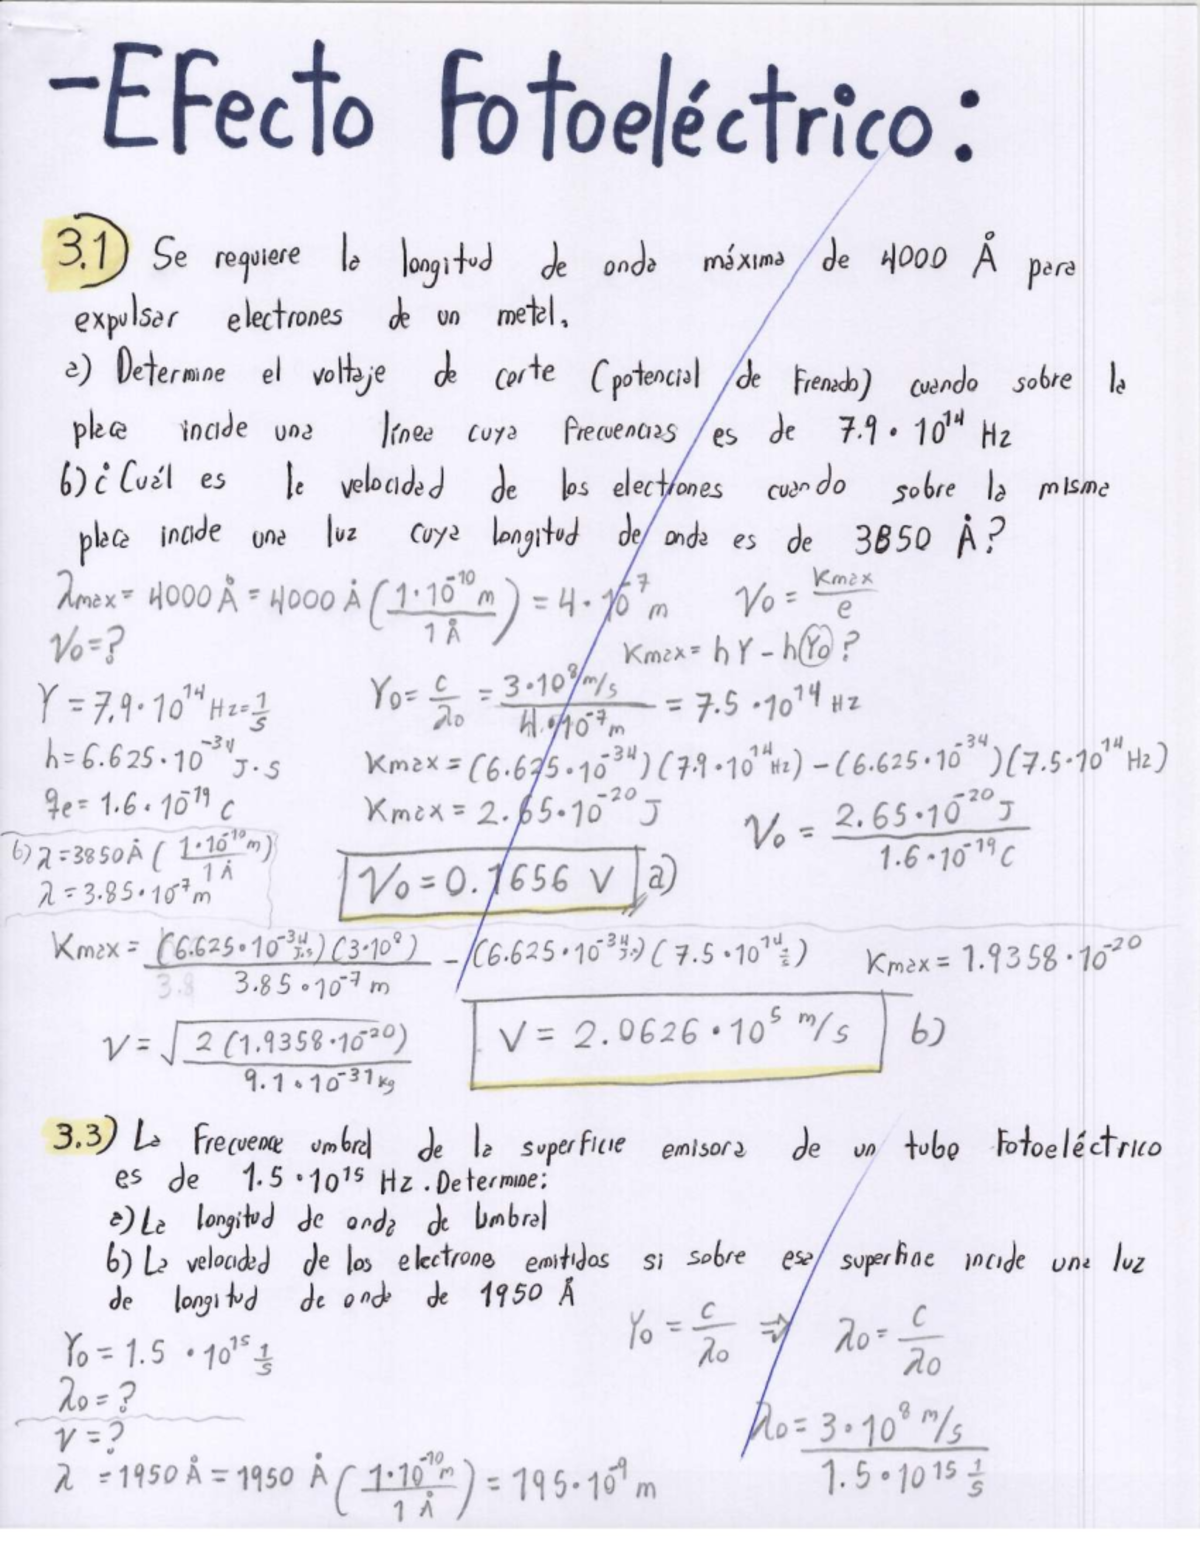 -Efecto Fotoeléctrico:
3.1) Se requiere la longitud de onda máxima de 4000 Å para
expulsar electrones de un metal.
a) Determine el voltaje de corte (potencial de Frenado) cuando sobre la
placa incide una línea cuya frecuencias es de 7.9 • 10¹⁴ Hz
b) ¿Cuál es la velocidad de los electrones cuando sobre la misma
placa incide una luz cuya longitud de onda es de 3850 Å?
λmax = 4000 Å = 4000 Å (1•10⁻¹⁰ m / 1 Å) = 4•10⁻⁷ m V₀ = Kmax / e
V₀=? Kmax = hγ - hγ₀?
γ = 7.9•10¹⁴ Hz=1/s γ₀= c/λ₀ = 3•10⁸ m/s / 4•10⁻⁷ m = 7.5 •10¹⁴ Hz
h=6.625•10⁻³⁴ J•s Kmax = (6.625•10⁻³⁴)(7.9•10¹⁴ Hz) - (6.625•10⁻³⁴)(7.5•10¹⁴ Hz)
qe= 1.6•10⁻¹⁹ C Kmax = 2.65•10⁻²⁰ J V₀ = 2.65•10⁻²⁰ J / 1.6•10⁻¹⁹ C
b) λ=3850Å (1•10⁻¹⁰ m / 1 Å)
λ = 3.85•10⁻⁷ m V₀ = 0.1656 V a)
Kmax = (6.625•10⁻³⁴ J•s)(3•10⁸) / 3.85•10⁻⁷ m - (6.625•10⁻³⁴ J•s)(7.5•10¹⁴ 1/s) Kmax = 1.9358•10⁻²⁰
V = √(2(1.9358•10⁻²⁰) / 9.1•10⁻³¹ kg) V = 2.0626•10⁵ m/s b)
3.3) La Frecuence umbral de la superficie emisora de un tubo Fotoeléctrico
es de 1.5•10¹⁵ Hz. Determine:
a) La longitud de onda de Umbral
b) La velocidad de los electrone emitidos si sobre esa superfine incide una luz
de longitud de onda de 1950 Å
γ₀ = 1.5 •10¹⁵ 1/s γ₀ = c/λ₀ ⇒ λ₀ = c/λ₀
λ₀ = ?
V =? λ₀= 3•10⁸ m/s / 1.5•10¹⁵ 1/s
λ = 1950 Å = 1950 Å (1•10⁻¹⁰ m / 1 Å) = 195•10⁻⁹ m